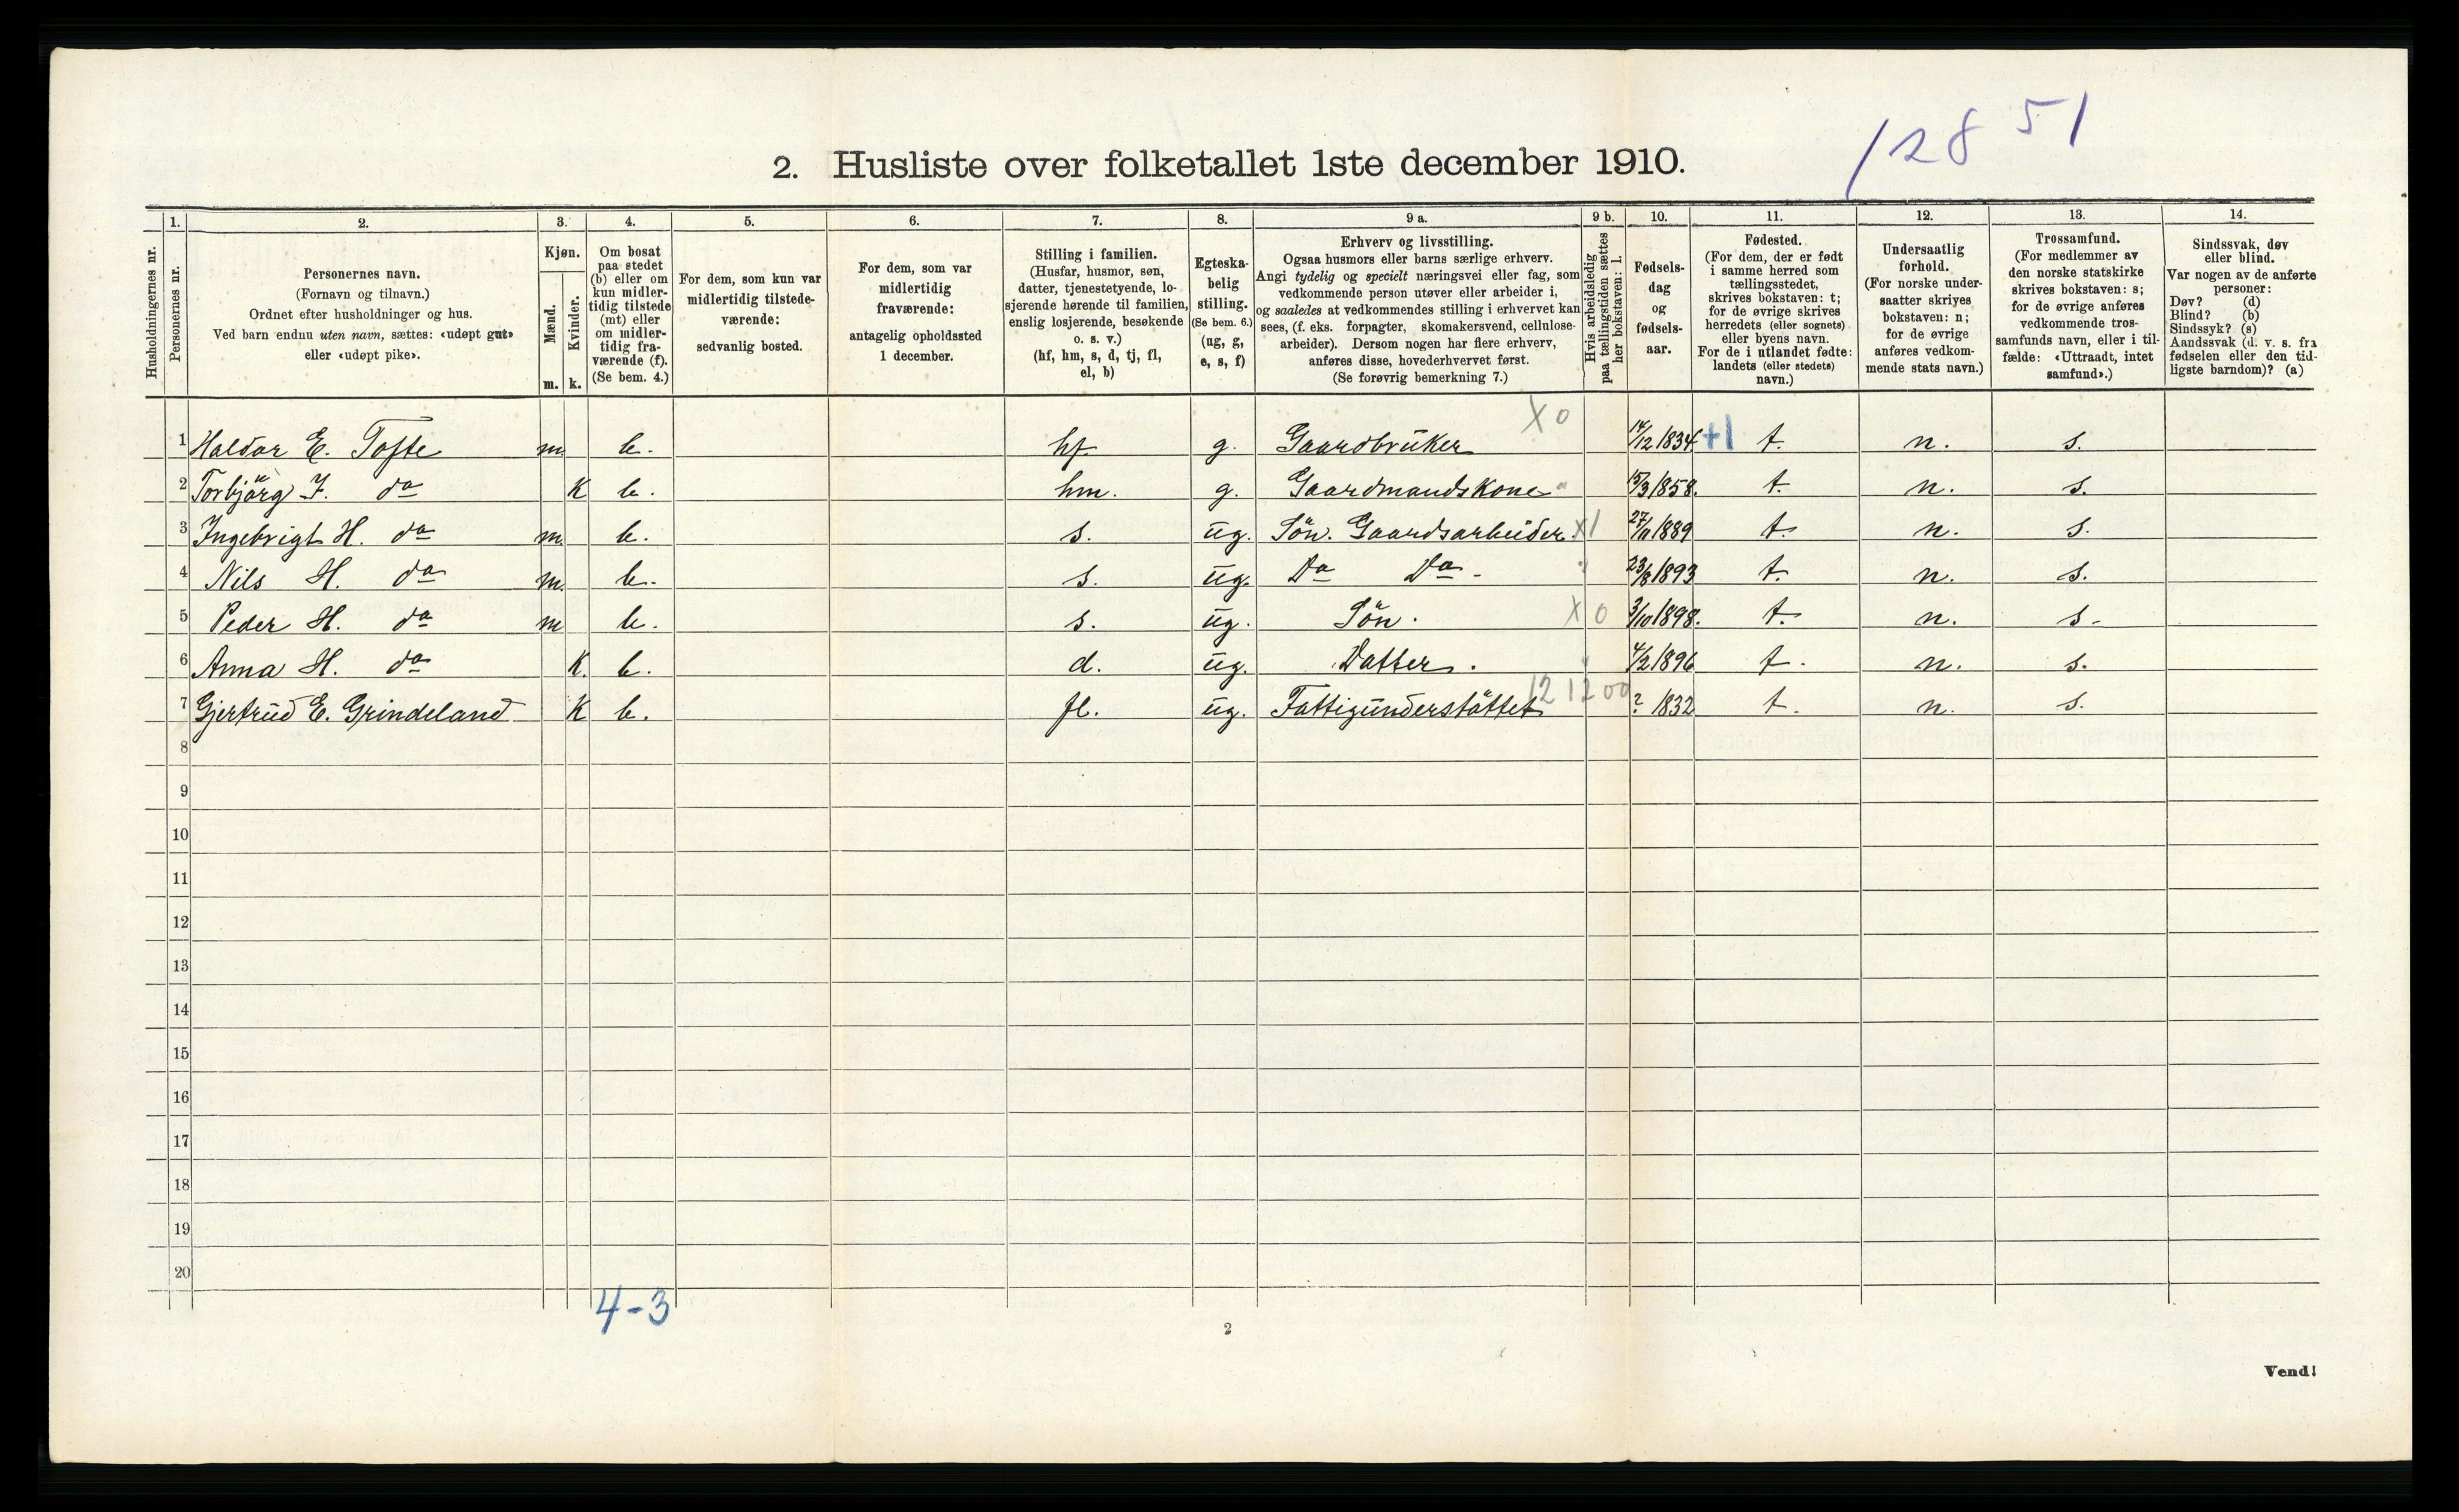 12851
2. Husliste over folketallet 1ste december 1910.
1. 2. 3. 4. 5. 6. 7. 8. 9 a. 9 b. 10. 11. 12. 13. 14.
Husholdningernes nr.
Personernes nr.
Personernes navn.
(Fornavn og tilnavn.)
Ordnet efter husholdninger og hus.
Ved barn endnu uten navn, sættes: «udøpt gut»
eller «udøpt pike».
Kjøn.
Mænd.
Kvinder.
m. k.
Om bosat
paa stedet
(b) eller om
kun midler-
tidig tilstede
(mt) eller
om midler-
tidig fra-
værende (f).
(Se bem. 4.)
For dem, som kun var
midlertidig tilstede-
værende:
sedvanlig bosted.
For dem, som var
midlertidig
fraværende:
antagelig opholdssted
1 december.
Stilling i familien.
(Husfar, husmor, søn,
datter, tjenestetyende, lo-
sjerende hørende til familien,
enslig losjerende, besøkende
o. s. v.)
(hf, hm, s, d, tj, fl,
el, b)
Egteska-
belig
stilling.
(Se bem. 6.)
(ug, g,
e, s, f)
Erhverv og livsstilling.
Ogsaa husmors eller barns særlige erhverv.
Angi tydelig og specielt næringsvei eller fag, som
vedkommende person utøver eller arbeider i,
og saaledes at vedkommendes stilling i erhvervet kan
sees, (f. eks. forpagter, skomakersvend, cellulose-
arbeider). Dersom nogen har flere erhverv,
anføres disse, hovederhvervet først.
(Se forøvrig bemerkning 7.)
Hvis arbeidsledig
paa tællingstiden sættes
her bokstaven: l.
Fødsels-
dag
og
fødsels-
aar.
Fødested.
(For dem, der er født
i samme herred som
tællingsstedet,
skrives bokstaven: t;
for de øvrige skrives
herredets (eller sognets)
eller byens navn.
For de i utlandet fødte:
landets (eller stedets)
navn.)
Undersaatlig
forhold.
(For norske under-
saatter skrives
bokstaven: n;
for de øvrige
anføres vedkom-
mende stats navn.)
Trossamfund.
(For medlemmer av
den norske statskirke
skrives bokstaven: s;
for de øvrige anføres
vedkommende tros-
samfunds navn, eller i til-
fælde: «Uttraadt, intet
samfund».)
Sindssvak, døv
eller blind.
Var nogen av de anførte
personer:
Døv? (d)
Blind? (b)
Sindssyk? (s)
Aandssvak (d. v. s. fra
fødselen eller den tid-
ligste barndom)? (a)
1 Haldor E. Tofte m. b. hf g. Gaardbruker X0 14/12 1834 +1 t. n. s.
2 Torbjörg I. do K b. hm. g. Gaardmandskone " 15/3 1858. t. n. s.
3 Ingebrigt H. do m. b. s. ug. Sön. Gaardsarbeider. X1 27/11 1889 t. n. s.
4 Nils H. do m. b. s. ug. Do Do. " 23/8 1893 t. n. s.
5 Peder H. do m b. s. ug. Sön. X0 3/10 1898. t. n. s.
6 Anna H. do K. b. d. ug. Datter. " 4/2 1896 t. n. s.
7 Gjertrud E. Grindeland K b. fl. ug. Fattigunderstöttet 121200 ? 1832 t. n. s.
8
9
10
11
12
13
14
15
16
17
18
19
20
4-3
2
Vend!